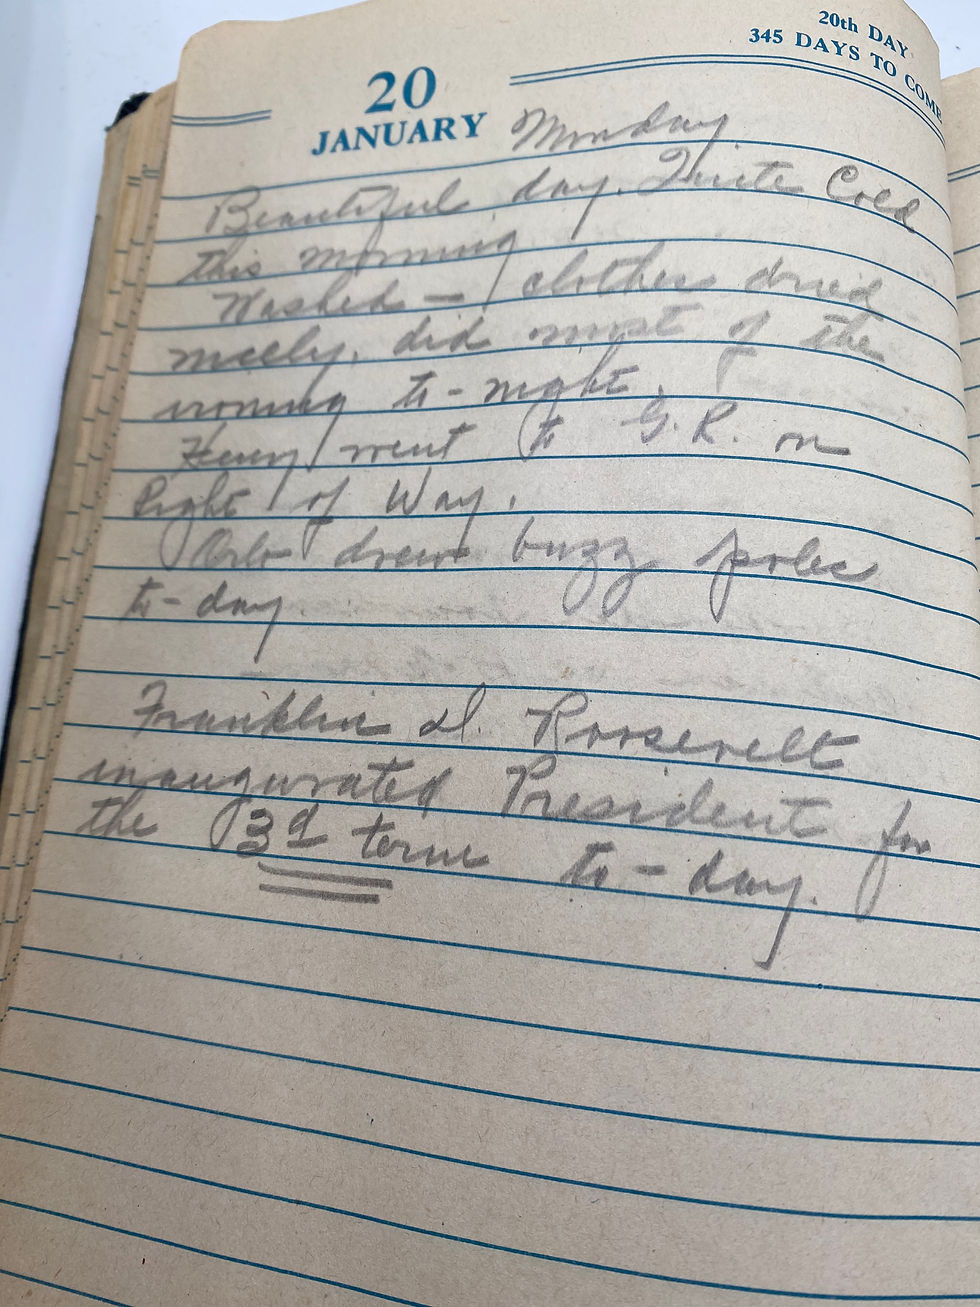 20th DAY
345 DAYS TO COME
20
JANUARY Monday
Beautiful day. Quite Cold
this morning
Washed – clothes dried
nicely. did most of the
ironing to-night.
Henry went to G.R. on
Right of Way.
drew buzz poles
to-day.
Franklin D. Roosevelt
inaugurated President for
the 3d term to-day.